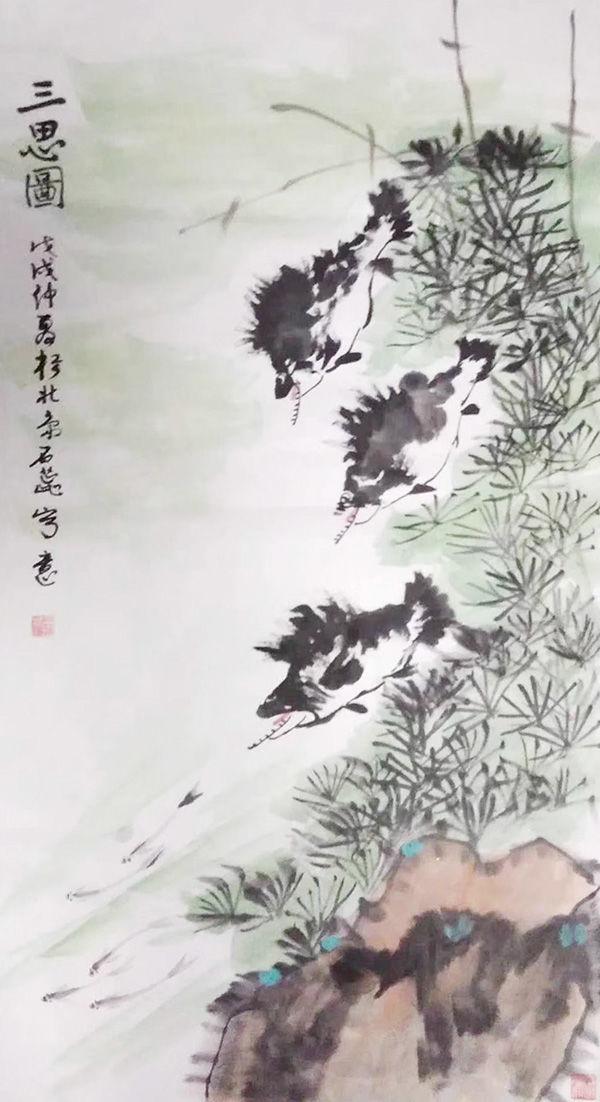 三思圖
戊戌仲夏於北京石蕊写意